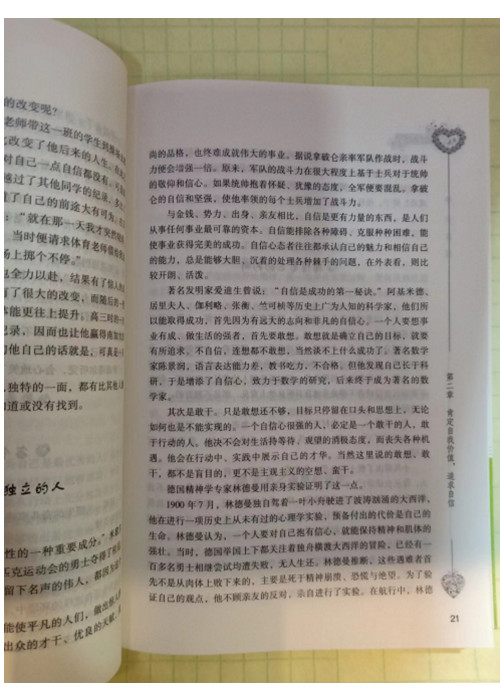 的改变呢?
老师带这一班的学生到操
改变了他后来的人生。
对自己一点自信都没有。
越过了其他同学的纪录。
了自己的前途大有可为。
:“就在那一天我才突然
当时便请求体育老师借
场上掷个不停。”
也全力以赴,结果有了惊人的
有了很大的改变,而随后的
本能更往上提升。高三时的
记录,因而也让他赢得南加
的他自己的话就是,可真是一
独特的一面,都有比其他人
知道或没有找到。
独立的人
性的一种重要成分。”
匹克运动会的勇士夺得了
留下名声的伟人,都因为
能使平凡的人们,做出惊人
出众的才干、优良的天赋、
尚的品格,也终难成就伟大的事业。据说拿破仑亲率军队作战时,战斗
力便会增强一倍。原来,军队的战斗力在很大程度上基于士兵对于统帅
的敬仰和信心。如果统帅抱着怀疑、犹豫的态度,全军便要混乱。拿破
仑的自信和坚强,使他率领的每个士兵增加了战斗力。
与金钱、势力、出身、亲友相比,自信是更有力量的东西,是人们
从事任何事业最可靠的资本。自信能排除各种障碍、克服种种困难,能
使事业获得完美的成功。自信心态者往往都承认自己的魅力和相信自己
的能力,总是能够大胆,沉着的处理各种棘手的问题,在外表看,则比
较开朗、活泼。
著名发明家爱迪生曾说:“自信是成功的第一秘诀。”阿基米德、
居里夫人、伽利略、张衡、竺可桢等历史上广为人知的科学家,他们所
以能取得成功,首先因为有远大的志向和非凡的自信心。一个人要想事
业有成、做生活的强者,首先要敢想。敢想就是确立自己的目标,就要
有所追求。不自信,连想都不敢想,当然谈不上什么成功了。著名数学
家陈景润,语言表达能力差,教书吃力,不合格。但他发现自己长于科
研,于是增添了自信心,致力于数学的研究,后来终于成为著名的数
学家。
其次是敢干。只是敢想还不够,目标只停留在口头和思想上,无论
如何也是不能实现的。一个自信心很强的人,必定是一个敢干的人,敢
于行动的人。他决不会对生活持等待、观望的消极态度,而丧失各种机
遇。他会在行动中、实践中展示自己的才华。当然这里说的敢想、敢
干,都不是盲目的,更不是主观主义的空想、蛮干。
德国精神学专家林德曼用亲身实验证明了这一点。
1900年7月,林德曼独自驾着一叶小舟驶进了波涛汹涌的大西洋,
他在进行一项历史上从未有过的心理学实验,预备付出的代价是自己的
生命。林德曼认为,一个人要对自己抱有信心,就能保持精神和肌体的
强壮。当时,德国举国上下都关注着独舟横渡大西洋的冒险,已经有一
百多名勇士相继尝试均遭失败,无人生还。林德曼推断,这些遇难者首
先不是从肉体上败下来的,主要是死于精神崩溃、恐慌与绝望。为了验
证自己的观点,他不顾亲友的反对,亲自进行了实验。在航行中,林德
第二章 肯定自我价值,追求自信
21